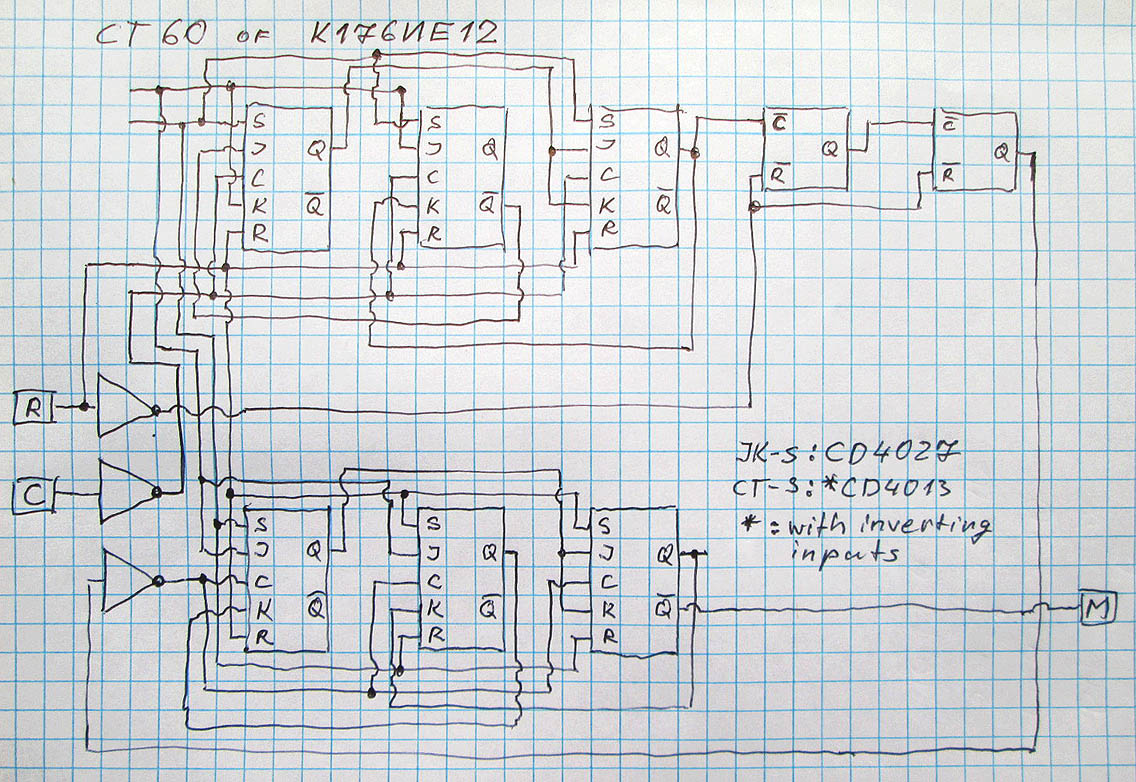 CT 60 OF K176ИE12
S
J Q
C
K Q̅
R
S
J Q
C
K Q̅
R
S
J Q
C
K Q̅
R
C̅
Q
R̅
C̅
Q
R̅
R
C̅
JK-S: CD4027
CT-S: *CD4013
* : with inverting
inputs
S
J Q
C
K Q̅
R
S
J Q
C
K Q̅
R
S
J Q
C
K Q̅
R
M